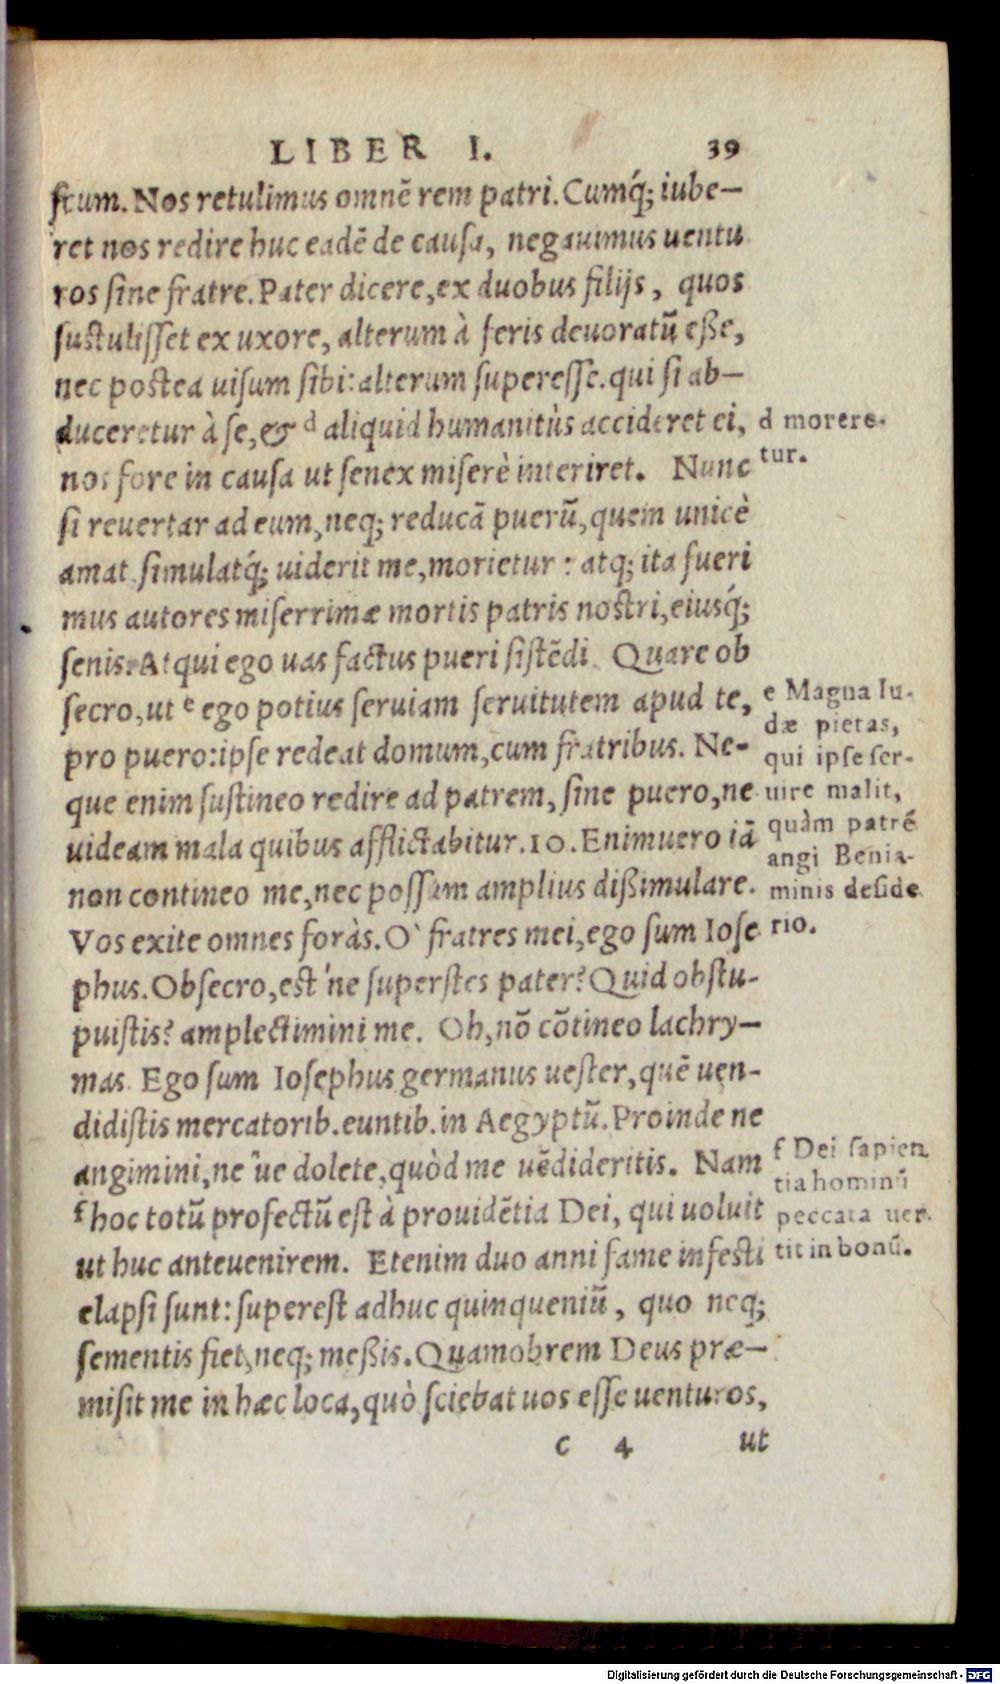 LIBER I. 39
stum. Nos retulimus omnē rem patri. Cumq́; iube-
ret nos redire huc eadē de causa, negauimus uentu
ros sine fratre. Pater dicere, ex duobus filijs, quos
sustulisset ex uxore, alterum à feris deuoratū eße,
nec postea uisum sibi: alterum superesse. qui si ab-
duceretur à se, & d aliquid humanitùs accideret ei,
nos fore in causa ut senex miserè interiret. Nunc
si reuertar ad eum, neq; reducā puerū, quem unicè
amat simulatq́; uiderit me, morietur: atq; ita fueri
mus autores miserrimæ mortis patris nostri, eiusq́;
senis. Atqui ego uas factus pueri sistēdi. Quare ob
secro, ut e ego potius seruiam seruitutem apud te,
pro puero: ipse redeat domum, cum fratribus. Ne-
que enim sustineo redire ad patrem, sine puero, ne
uideam mala quibus afflictabitur. 10. Enimuero iā
non contineo me, nec possum amplius dißimulare.
Vos exite omnes foràs. O` fratres mei, ego sum Iose
phus. Obsecro, est 'ne superstes pater? Quid obstu-
puistis? amplectimini me. Oh, nō cōtineo lachry-
mas. Ego sum Iosephus germanus uester, quē uen-
didistis mercatorib. euntib. in Aegyptū. Proinde ne
angimini, ne ue dolete, quòd me uēdideritis. Nam
f hoc totū profectū est à prouidētia Dei, qui uoluit
ut huc anteuenirem. Etenim duo anni fame infesti
elapsi sunt: superest adhuc quinqueniū, quo neq;
sementis fiet, neq; meßis. Quamobrem Deus præ-
misit me in hæc loca, quò sciebat uos esse uenturos,
c 4 ut
d morere-
tur.
e Magna Iu-
dæ pietas,
qui ipse ser-
uire malit,
quàm patrē
angi Benia-
minis deside
rio.
f Dei sapien
tia hominū
peccata uer-
tit in bonū.
Digitalisierung gefördert durch die Deutsche Forschungsgemeinschaft - DFG